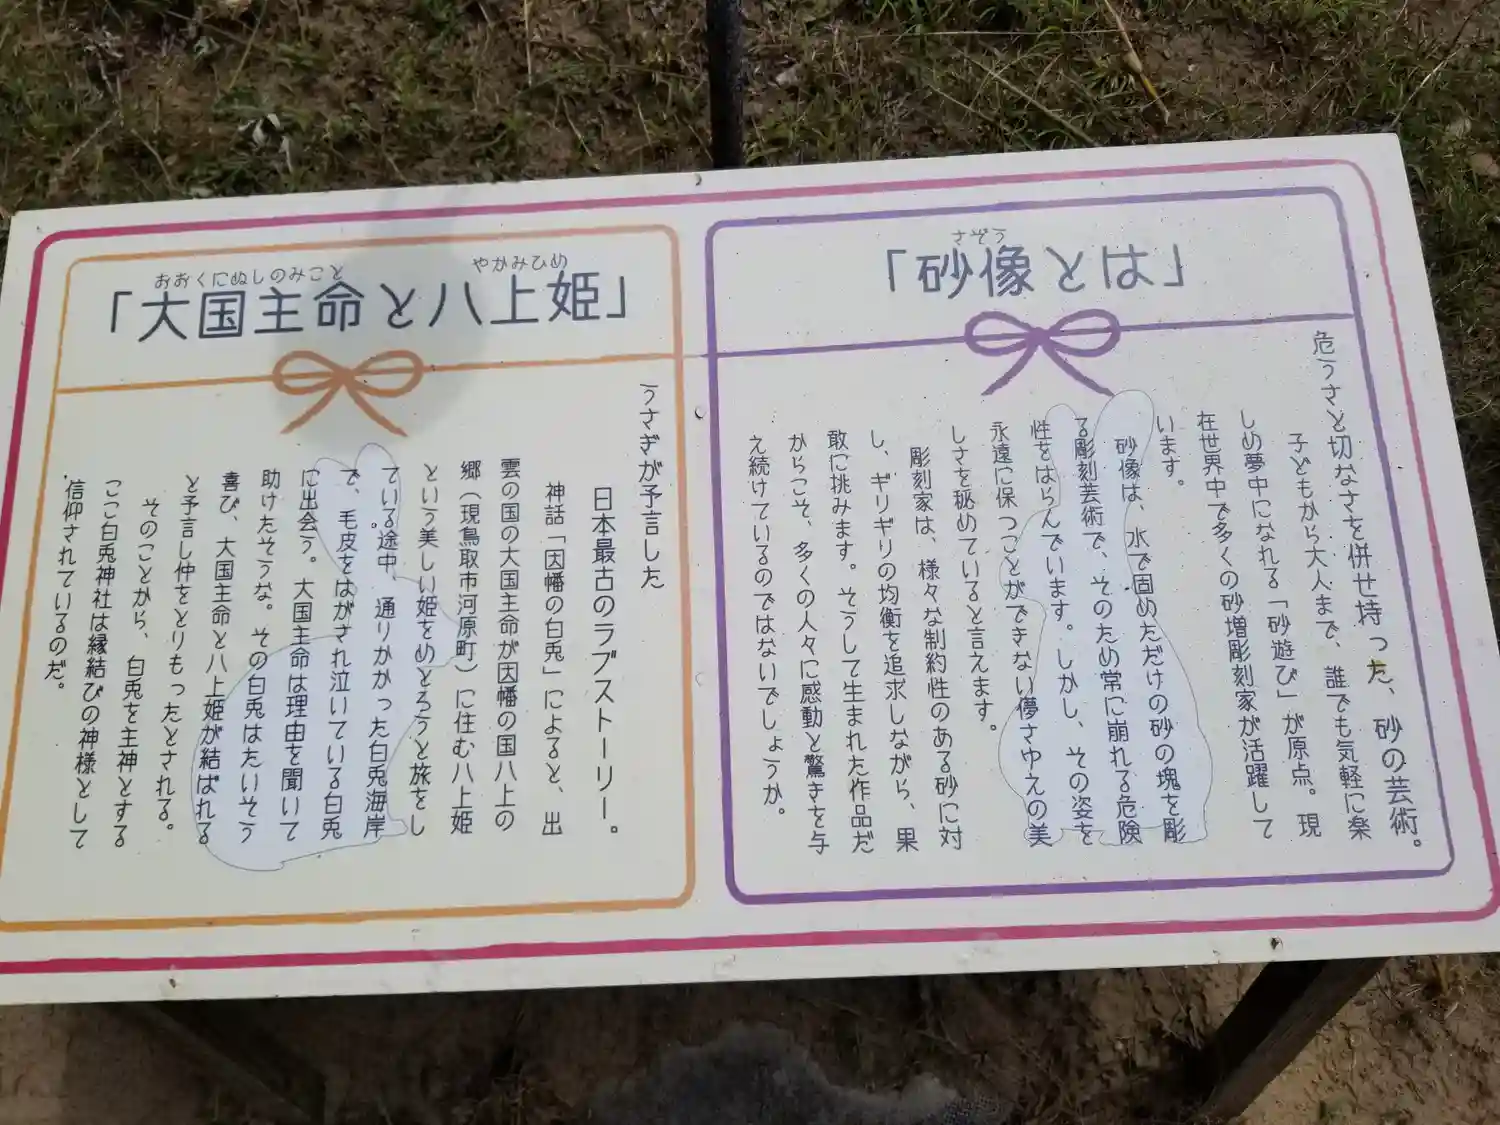 「砂像とは」
さぞう
危うさと切なさを併せ持った、砂の芸術。
子どもから大人まで、誰でも気軽に楽
しめ夢中になれる「砂遊び」が原点。現
在世界中で多くの砂増彫刻家が活躍して
います。
砂像は、水で固めただけの砂の塊を彫
る彫刻芸術で、そのため常に崩れる危険
性をはらんでいます。しかし、その姿を
永遠に保つことができない儚さゆえの美
しさを秘めていると言えます。
彫刻家は、様々な制約性のある砂に対
し、ギリギリの均衡を追求しながら、果
敢に挑みます。そうして生まれた作品だ
からこそ、多くの人々に感動と驚きを与
え続けているのではないでしょうか。
「大国主命と八上姫」
おおくにぬしのみこと
やかみひめ
うさぎが予言した
日本最古のラブストーリー。
神話「因幡の白兎」によると、出
雲の国の大国主命が因幡の国八上の
郷（現鳥取市河原町）に住む八上姫
という美しい姫をめとろうと旅をし
ている途中、通りかかった白兎海岸
で、毛皮をはがされ泣いている白兎
に出会う。大国主命は理由を聞いて
助けたそうな。その白兎はたいそう
喜び、大国主命と八上姫が結ばれる
と予言し仲をとりもったとされる。
そのことから、白兎を主神とする
ここ白兎神社は縁結びの神様として
信仰されているのだ。